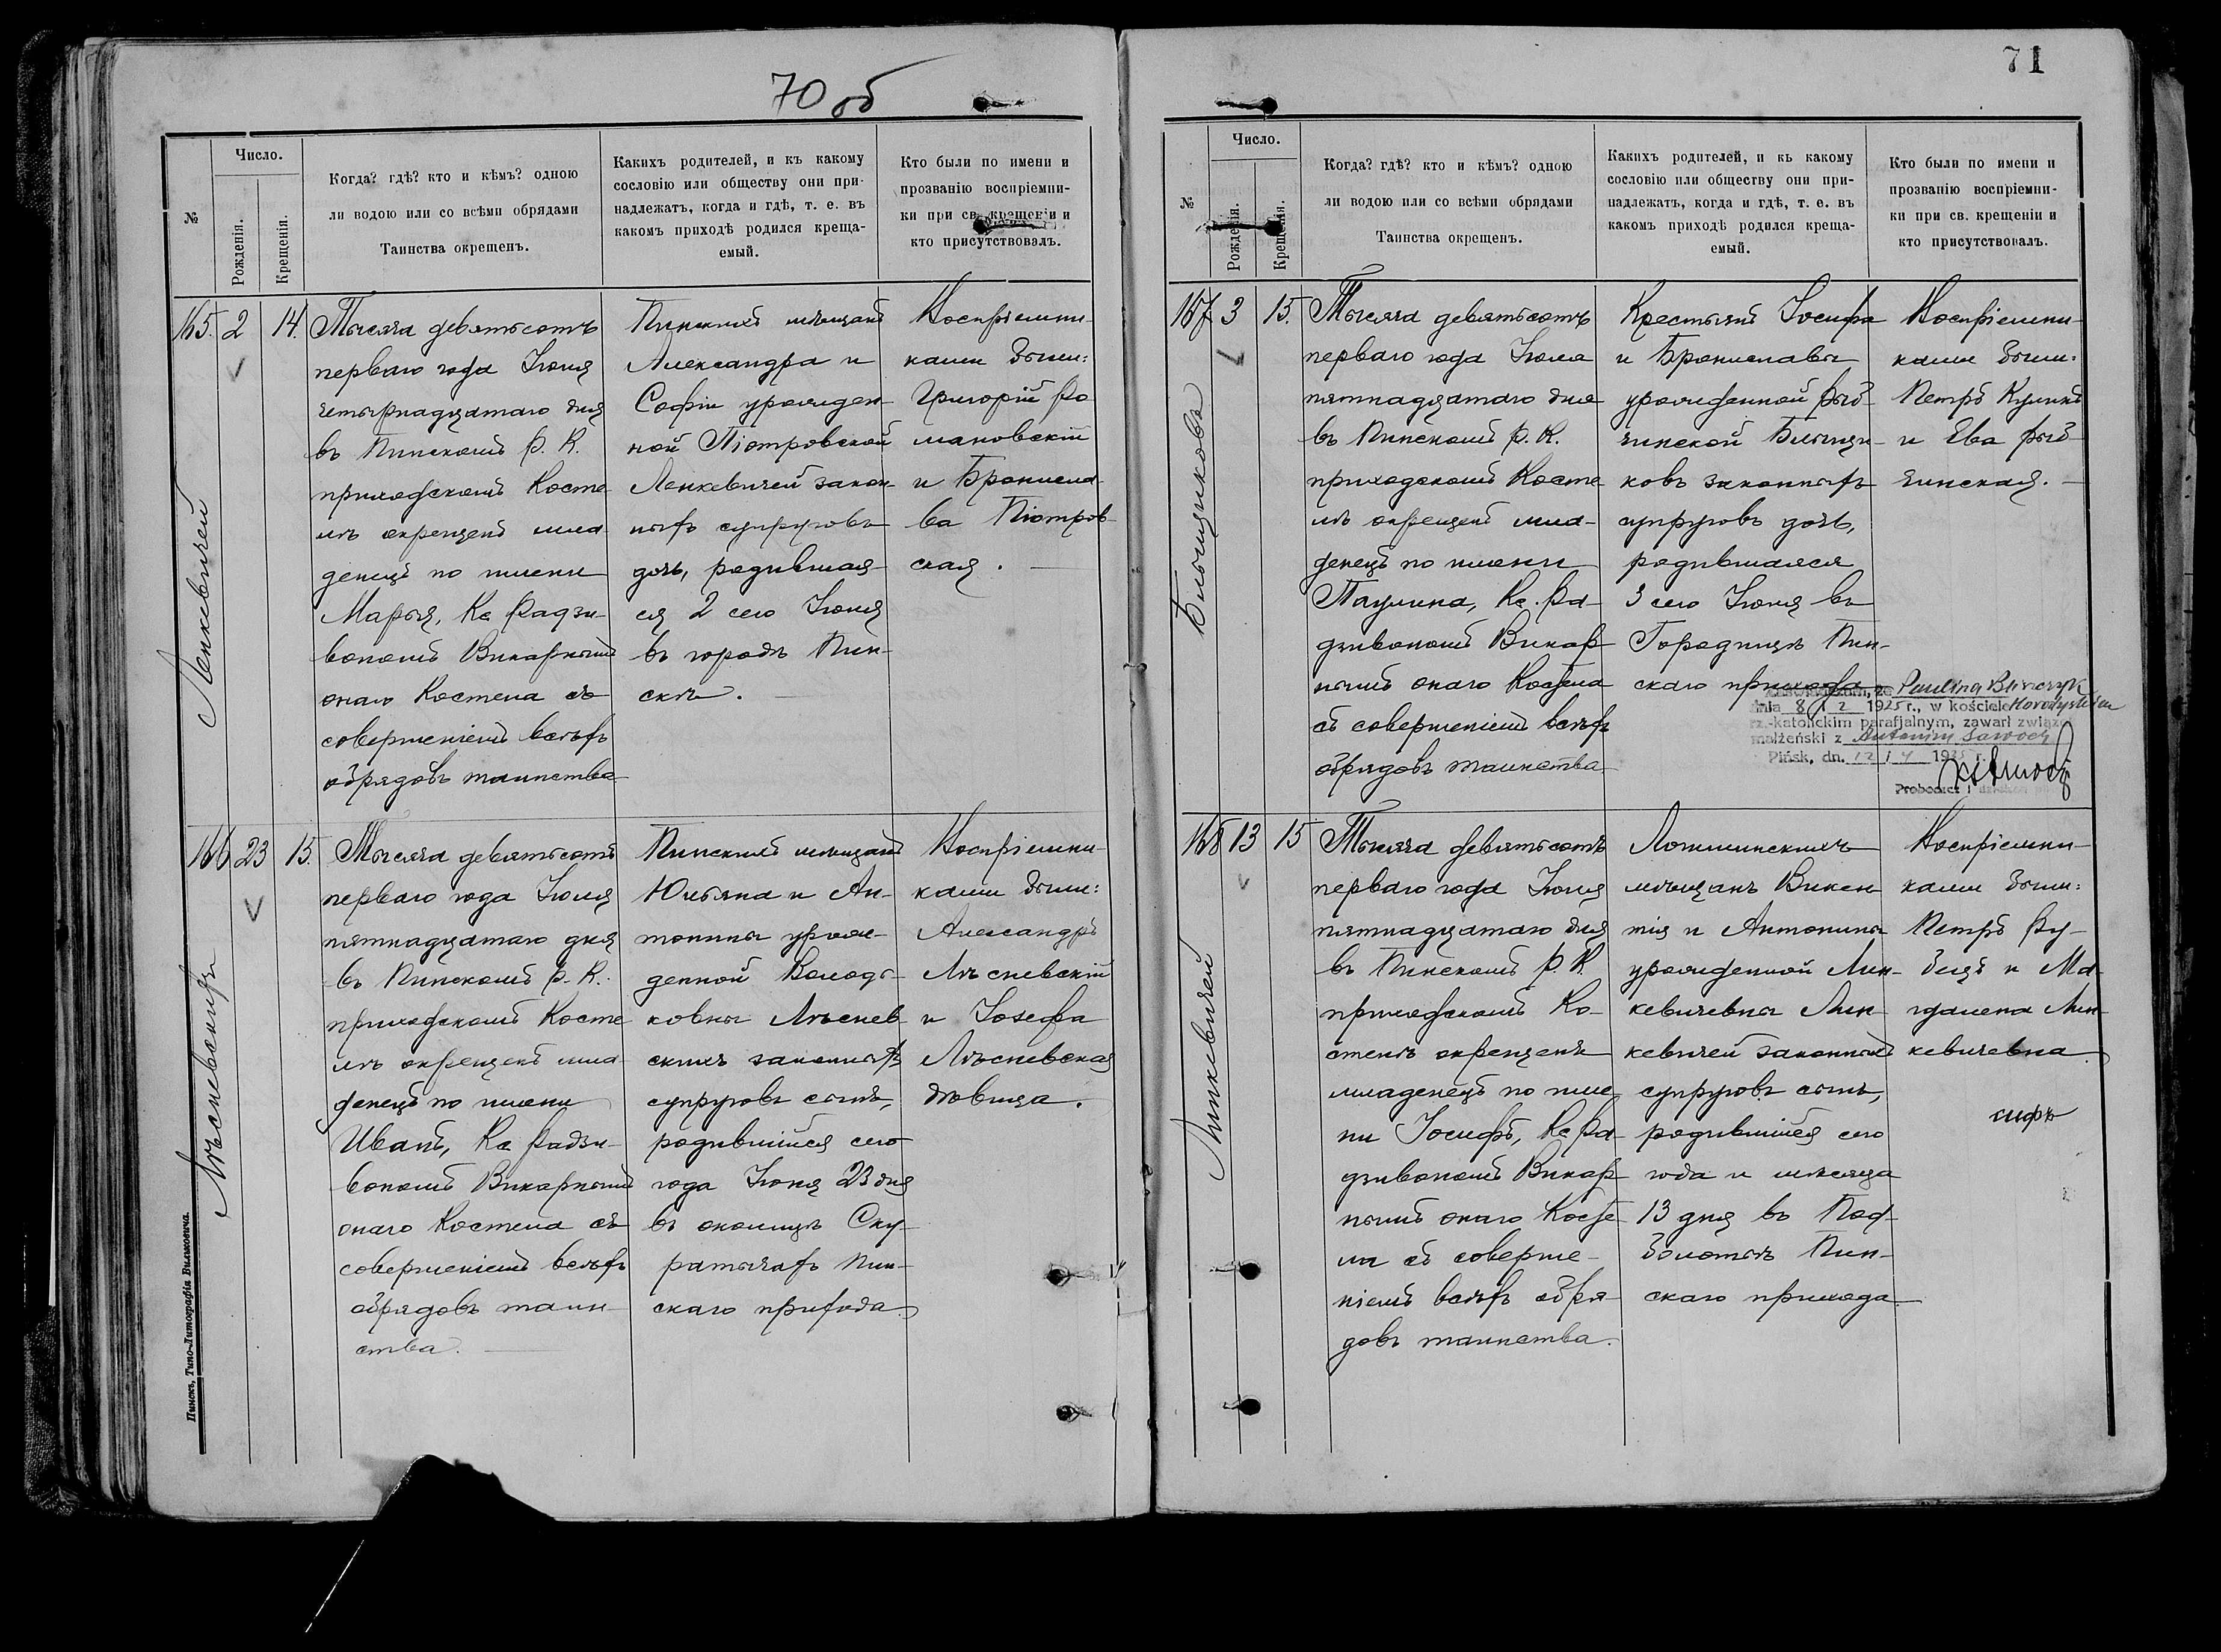 70 об
№
Число.
Рожденія.
Крещенія.
Когда? гдѣ? кто и кѣмъ? одною
ли водою или со всѣми обрядами
Таинства окрещенъ.
Какихъ родителей, и къ какому
сословію или обществу они при-
надлежатъ, когда и гдѣ, т. е. въ
какомъ приходѣ родился креща-
емый.
Кто были по имени и
прозванію воспріемни-
ки при св. крещеніи и
кто присутствовалъ.
165. 2 14.
Ленкевичей
Тысяча девятьсотъ
перваго года Іюля
четырнадцатаго дня
въ Пинскомъ Р. К.
приходскомъ Косте
лѣ окрещенъ мла-
денецъ по имени
Марья, Кс. Радзи-
вономъ Викарнымъ
онаго Костела съ
совершеніемъ всѣхъ
обрядовъ таинства
Пинскихъ мѣщанъ
Александра и
Софіи урожден-
ной Піотровской
Ленкевичей закон-
ныхъ супруговъ
дочь, родившая-
ся 2 сего Іюля
въ городѣ Пин-
скѣ.
Воспріемни-
ками были:
Григорій Ро-
мановскій
и Бронисла-
ва Піотров-
ская.
166 23 15.
Лѣсневскихъ
Тысяча девятьсотъ
перваго года Іюля
пятнадцатаго дня
въ Пинскомъ Р. К.
приходскомъ Косте
лѣ окрещенъ мла-
денецъ по имени
Иванъ, Кс. Радзи-
вономъ Викарнымъ
онаго Костела съ
совершеніемъ всѣхъ
обрядовъ таин-
ства.
Пинскихъ мѣщанъ
Юльяна и Ан-
тонины урож-
денной Колод-
ковны Лѣснев-
скихъ законныхъ
супруговъ сынъ,
родившійся сего
года Іюня 23 дня
въ околицѣ Ску-
ратычахъ Пин-
скаго прихода
Воспріемни-
ками были:
Александръ
Лѣсневскій
и Іозефа
Лѣсневская
дѣвица.
Пинскъ, Типо-Литографія Вильковича.
71
№
Число.
Рожденія.
Крещенія.
Когда? гдѣ? кто и кѣмъ? одною
ли водою или со всѣми обрядами
Таинства окрещенъ.
Какихъ родителей, и къ какому
сословію или обществу они при-
надлежатъ, когда и гдѣ, т. е. въ
какомъ приходѣ родился креща-
емый.
Кто были по имени и
прозванію воспріемни-
ки при св. крещеніи и
кто присутствовалъ.
167 3 15.
Тысяча девятьсотъ
перваго года Іюля
пятнадцатаго дня
въ Пинскомъ Р. К.
приходскомъ Косте
лѣ окрещенъ мла-
денецъ по имени
Паулина, Кс. Ра-
дзивономъ Викар
нымъ онаго Костела
съ совершеніемъ всѣхъ
обрядовъ таинства
Крестьянъ Іосифа
и Брониславы
урожденной Рыб-
чинской
ковъ законныхъ
супруговъ дочь,
родившаяся
3 сего Іюля въ
Городищѣ Пин-
скаго прихода
Воспріемни-
ками были:
Петръ Куликъ
и Ева Рыб-
чинская.
Paulina
dnia 8 / 2 1925 r., w kościele Horodyskim
rz.-katolickim parafjalnym, zawarł związek
małżeński z Antonim
Pińsk, dn. 12 / 4 192 r.
Proboszcz i
168 13 15
Линкевичей
Тысяча девятьсотъ
перваго года Іюля
пятнадцатаго дня
въ Пинскомъ Р. К.
приходскомъ Ко-
стелѣ окрещенъ
младенецъ по име
ни Іосифъ, Кс. Ра-
дзивономъ Викар
нымъ онаго Косте-
ла съ соверше-
ніемъ всѣхъ обря-
довъ таинства.
Логишинскихъ
мѣщанъ Викен
тія и Антонины
урожденной Лин-
кевичевны Лин-
кевичей законныхъ
супруговъ сынъ,
родившійся сего
года и мѣсяца
13 дня въ Под-
болотьѣ Пин-
скаго прихода
Воспріемни-
ками были:
Петръ Ру-
бецъ и Ма-
гдалена Лин-
кевичевна
сифъ